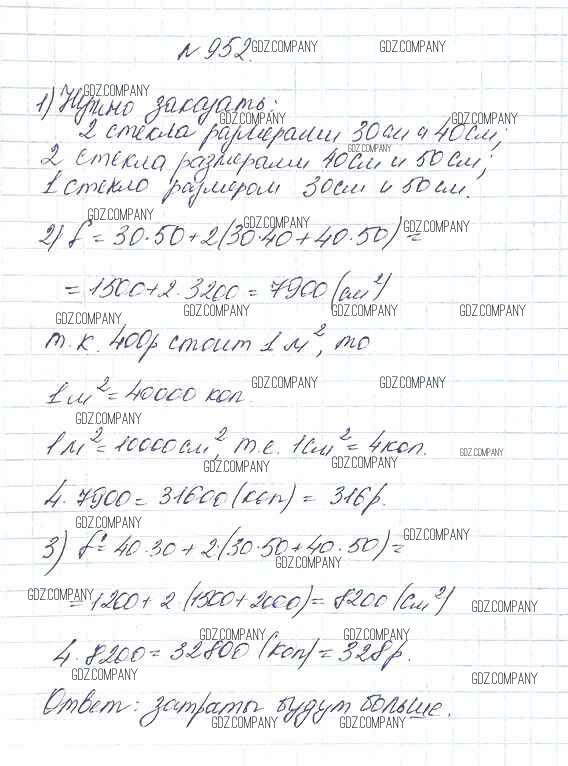 N 952. GDZ.COMPANY GDZ.COMPANY
GDZ.COMPANY
1) Нужно заказать:
GDZ.COMPANY GDZ.COMPANY
2 стекла размерами 30см и 40см;
GDZ.COMPANY
2 стекла размерами 40см и 50см;
1 стекло размером 30см и 50см.
GDZ.COMPANY GDZ.COMPANY GDZ.COMPANY
2) S = 30·50+2(30·40+40·50) =
= 1500+2·3200 = 7900 (см²)
GDZ.COMPANY GDZ.COMPANY GDZ.COMPANY GDZ.COMPANY
т.к. 400р стоит 1 м², то
GDZ.COMPANY GDZ.COMPANY
1м² = 40000 коп.
GDZ.COMPANY
1м² = 10000см², т.е. 1см² = 4коп.
GDZ.COMPANY GDZ.COMPANY GDZ.COMPANY
4·7900 = 31600 (коп) = 316р.
GDZ.COMPANY GDZ.COMPANY
3) S = 40·30 + 2·(30·50+40·50) =
GDZ.COMPANY
GDZ.COMPANY = 1200+2(1500+2000) = 8200 (см²) GDZ.COMPANY
GDZ.COMPANY GDZ.COMPANY
4·8200 = 32800 (коп) = 328р.
GDZ.COMPANY GDZ.COMPANY
Ответ: затраты будут больше.
GDZ.COMPANY GDZ.COMPANY